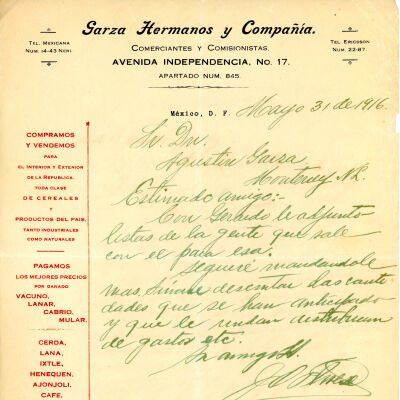 Garza Hermanos y Compañía.
Comerciantes y Comisionistas.
AVENIDA INDEPENDENCIA, No. 17.
APARTADO NUM. 845.
TEL. MEXICANA
NUM. 14-43 NERI.
TEL. ERICSSON
NUM. 22-87.
México, D. F. Mayo 31 de 1916.
COMPRAMOS
Y VENDEMOS
PARA
EL INTERIOR Y EXTERIOR
DE LA REPUBLICA
TODA CLASE
DE CEREALES
Y
PRODUCTOS DEL PAIS,
TANTO INDUSTRIALES
COMO NATURALES
PAGAMOS
LOS MEJORES PRECIOS
POR GANADO
VACUNO,
LANAR,
CABRIO,
MULAR.
CERDA,
LANA,
IXTLE,
HENEQUEN,
AJONJOLI,
CAFE,
Sr. Dn.
Agustin Garza
Monterrey N.L.
Estimado amigo:-
Con Gerardo le adjunto
listas de la gente que sale
con el para esa.
Seguiré mandandole
mas. Sirvase descontar las canti
dades que se han anticipado
y que le rindan distribucion
de gastos etc.
Su amigo